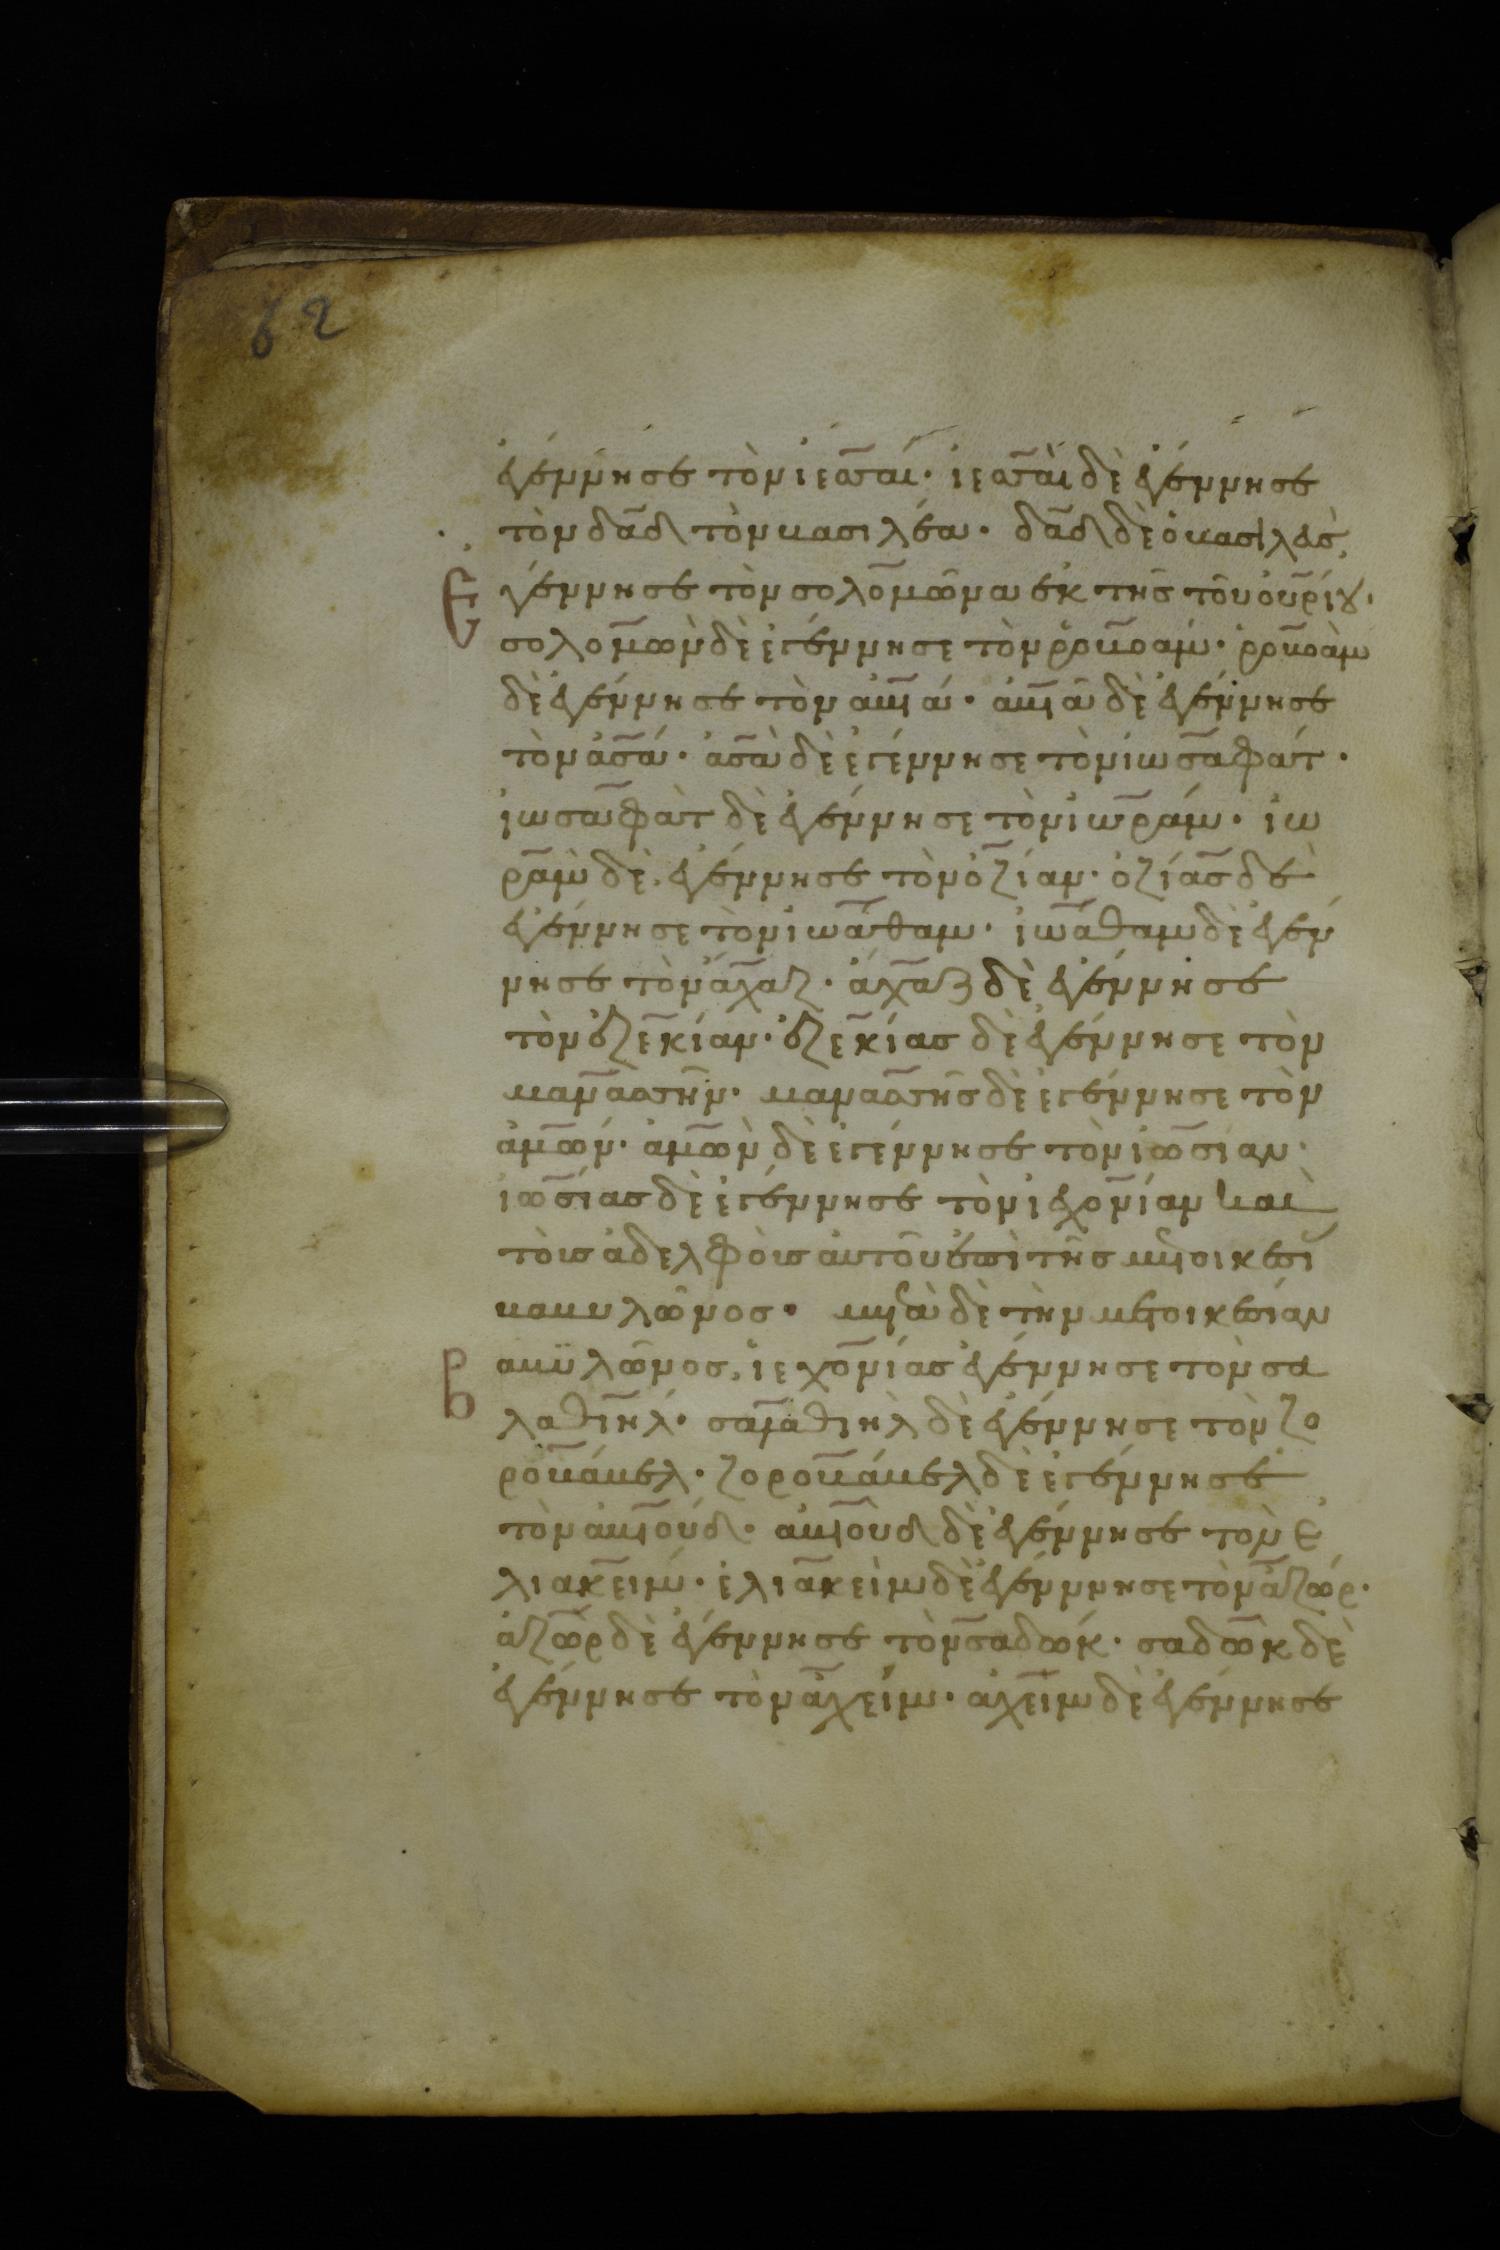 62
ἐγέννησε τὸν ἰεσσαί· ἰεσσαὶ δὲ ἐγέννησε
τὸν δᾱδ τὸν βασιλέα· δᾱδ δὲ ὁ βασιλεὺς
Ἐγέννησε τὸν σολομῶνα ἐκ τῆς τοῦ οὐρίου·
σολομὼν δὲ ἐγέννησε τὸν ῥοβοάμ· ῥοβοὰμ
δὲ ἐγέννησε τὸν ἀβιά· ἀβιὰ δὲ ἐγέννησε
τὸν ἀσά· ἀσὰ δὲ ἐγέννησε τὸν ἰωσαφάτ·
ἰωσαφὰτ δὲ ἐγέννησε τὸν ἰωράμ· ἰω
ρὰμ δὲ ἐγέννησε τὸν ὀζίαν· ὀζίας δὲ
ἐγέννησε τὸν ἰωάθαμ· ἰωάθαμ δὲ ἐγέν
νησε τὸν ἄχαζ· ἄχαζ δὲ ἐγέννησε
τὸν ἐζεκίαν· ἐζεκίας δὲ ἐγέννησε τὸν
μανασσῆν· μανασσῆς δὲ ἐγέννησε τὸν
ἀμών· ἀμὼν δὲ ἐγέννησε τὸν ἰωσίαν·
ἰωσίας δὲ ἐγέννησε τὸν ἰεχονίαν καὶ
τοὺς ἀδελφοὺς αὐτοῦ ἐπὶ τῆς μετοικεσί
βαβυλῶνος· μετὰ δὲ τὴν μετοικεσίαν
Βαβυλῶνος, ἰεχονίας ἐγέννησε τὸν σα
λαθιήλ· σαλαθιὴλ δὲ ἐγέννησε τὸν ζο
ροβάβελ· ζοροβάβελ δὲ ἐγέννησε
τὸν ἀβιούδ· ἀβιοὺδ δὲ ἐγέννησε τὸν ἐ
λιακείμ· ἐλιακεὶμ δὲ ἐγέννησε τὸν ἀζώρ·
ἀζὼρ δὲ ἐγέννησε τὸν σαδώκ· σαδὼκ δὲ
ἐγέννησε τὸν ἀχείμ· ἀχεὶμ δὲ ἐγέννησε